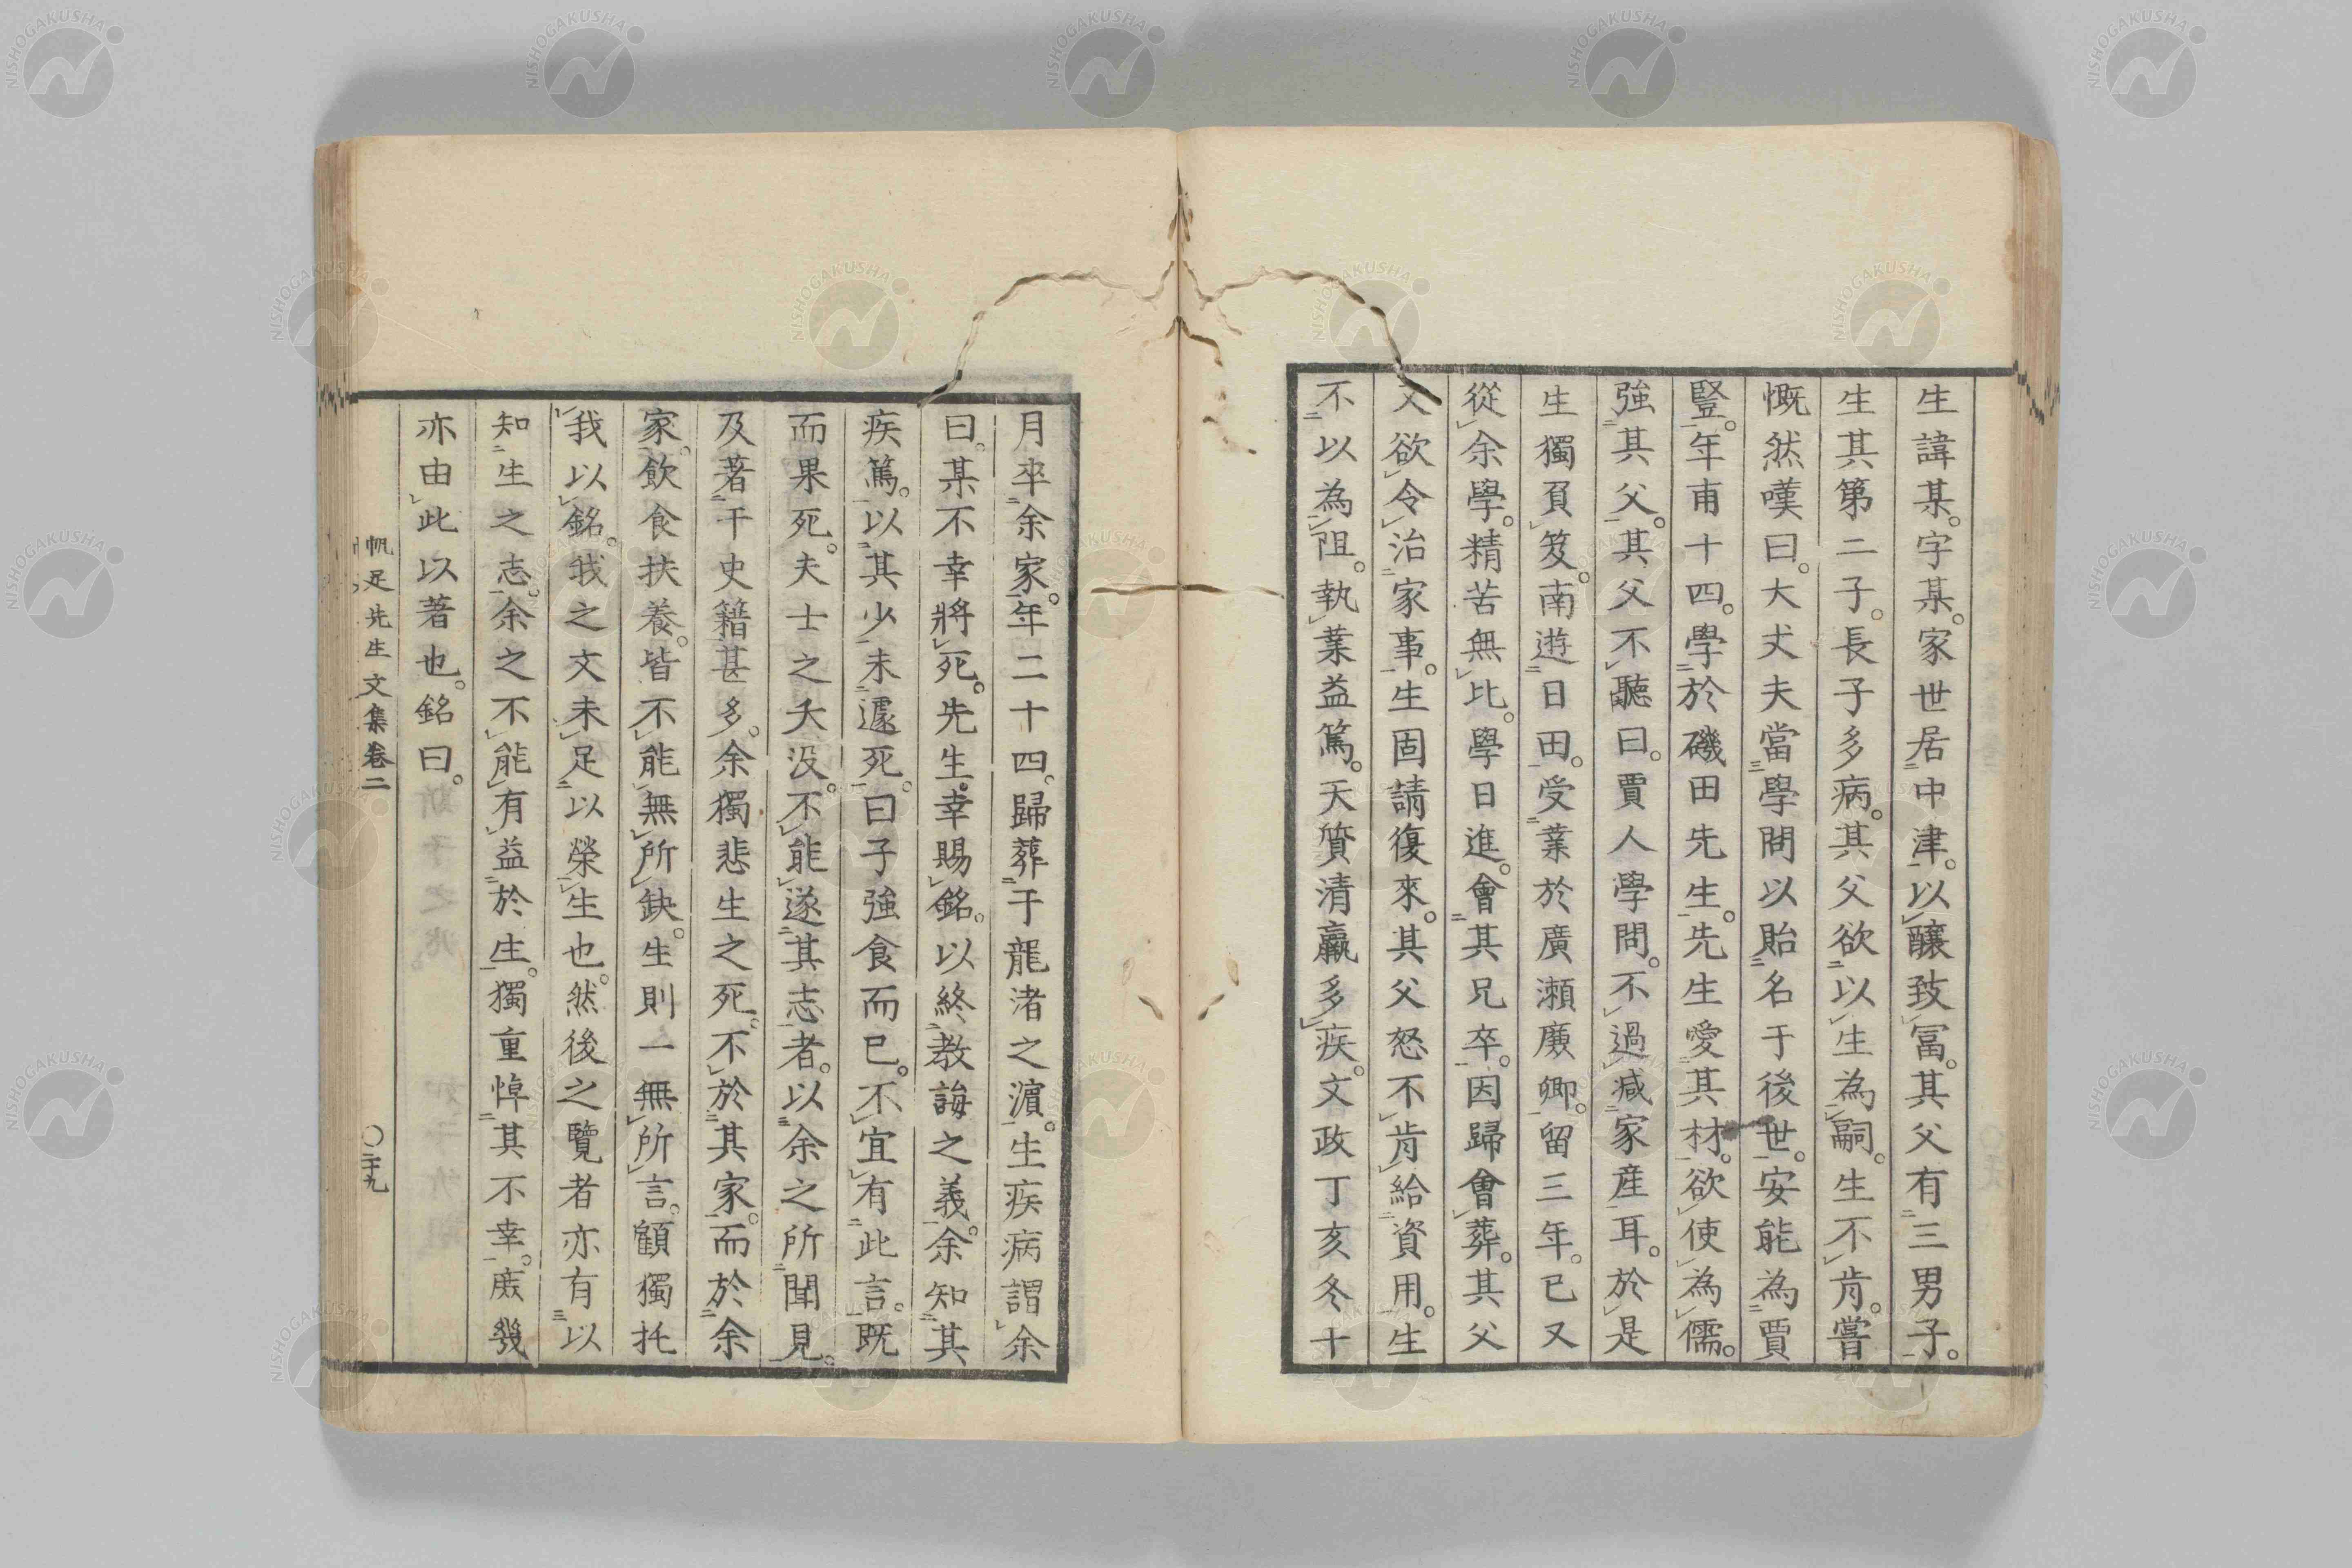 生諱某。字某。家世居中津。以釀致冨。其父有三男子。
生其第二子。長子多病。其父欲以生為嗣。生不肯。嘗
慨然嘆曰。大丈夫當學問以貽名于後世。安能為賈
豎。年甫十四。學於磯田先生。先生愛其材。欲使為儒。
強其父。其父不聽曰。賈人學問。不過減家産耳。於是
生獨負笈。南遊日田。受業於廣瀬廉卿。留三年。已又
從余學。精苦無比。學日進。會其兄卒。因歸會葬。其父
又欲令治家事。生固請復來。其父怒不肯給資用。生
不以為阻。執業益篤。天質清羸多疾。文政丁亥冬十
月卒余家。年二十四。歸葬于龍渚之濵。生疾病謂余
曰。某不幸將死。先生幸賜銘。以終教誨之義。余知其
疾篤。以其少未遽死。曰子強食而已。不宜有此言。既
而果死。夫士之夭沒。不能遂其志者。以余之所聞見。
及著于史籍甚多。余獨悲生之死。不於其家。而於余
家。飲食扶養。皆不能無所缺。生則一無所言。顧獨托
我以銘。我之文未足以榮生也。然後之覽者亦有以
知生之志。余之不能有益於生。獨重悼其不幸。庶幾
亦由此以著也。銘曰。
帆足先生文集卷二
〇二十九
NISHOGAKUSHA